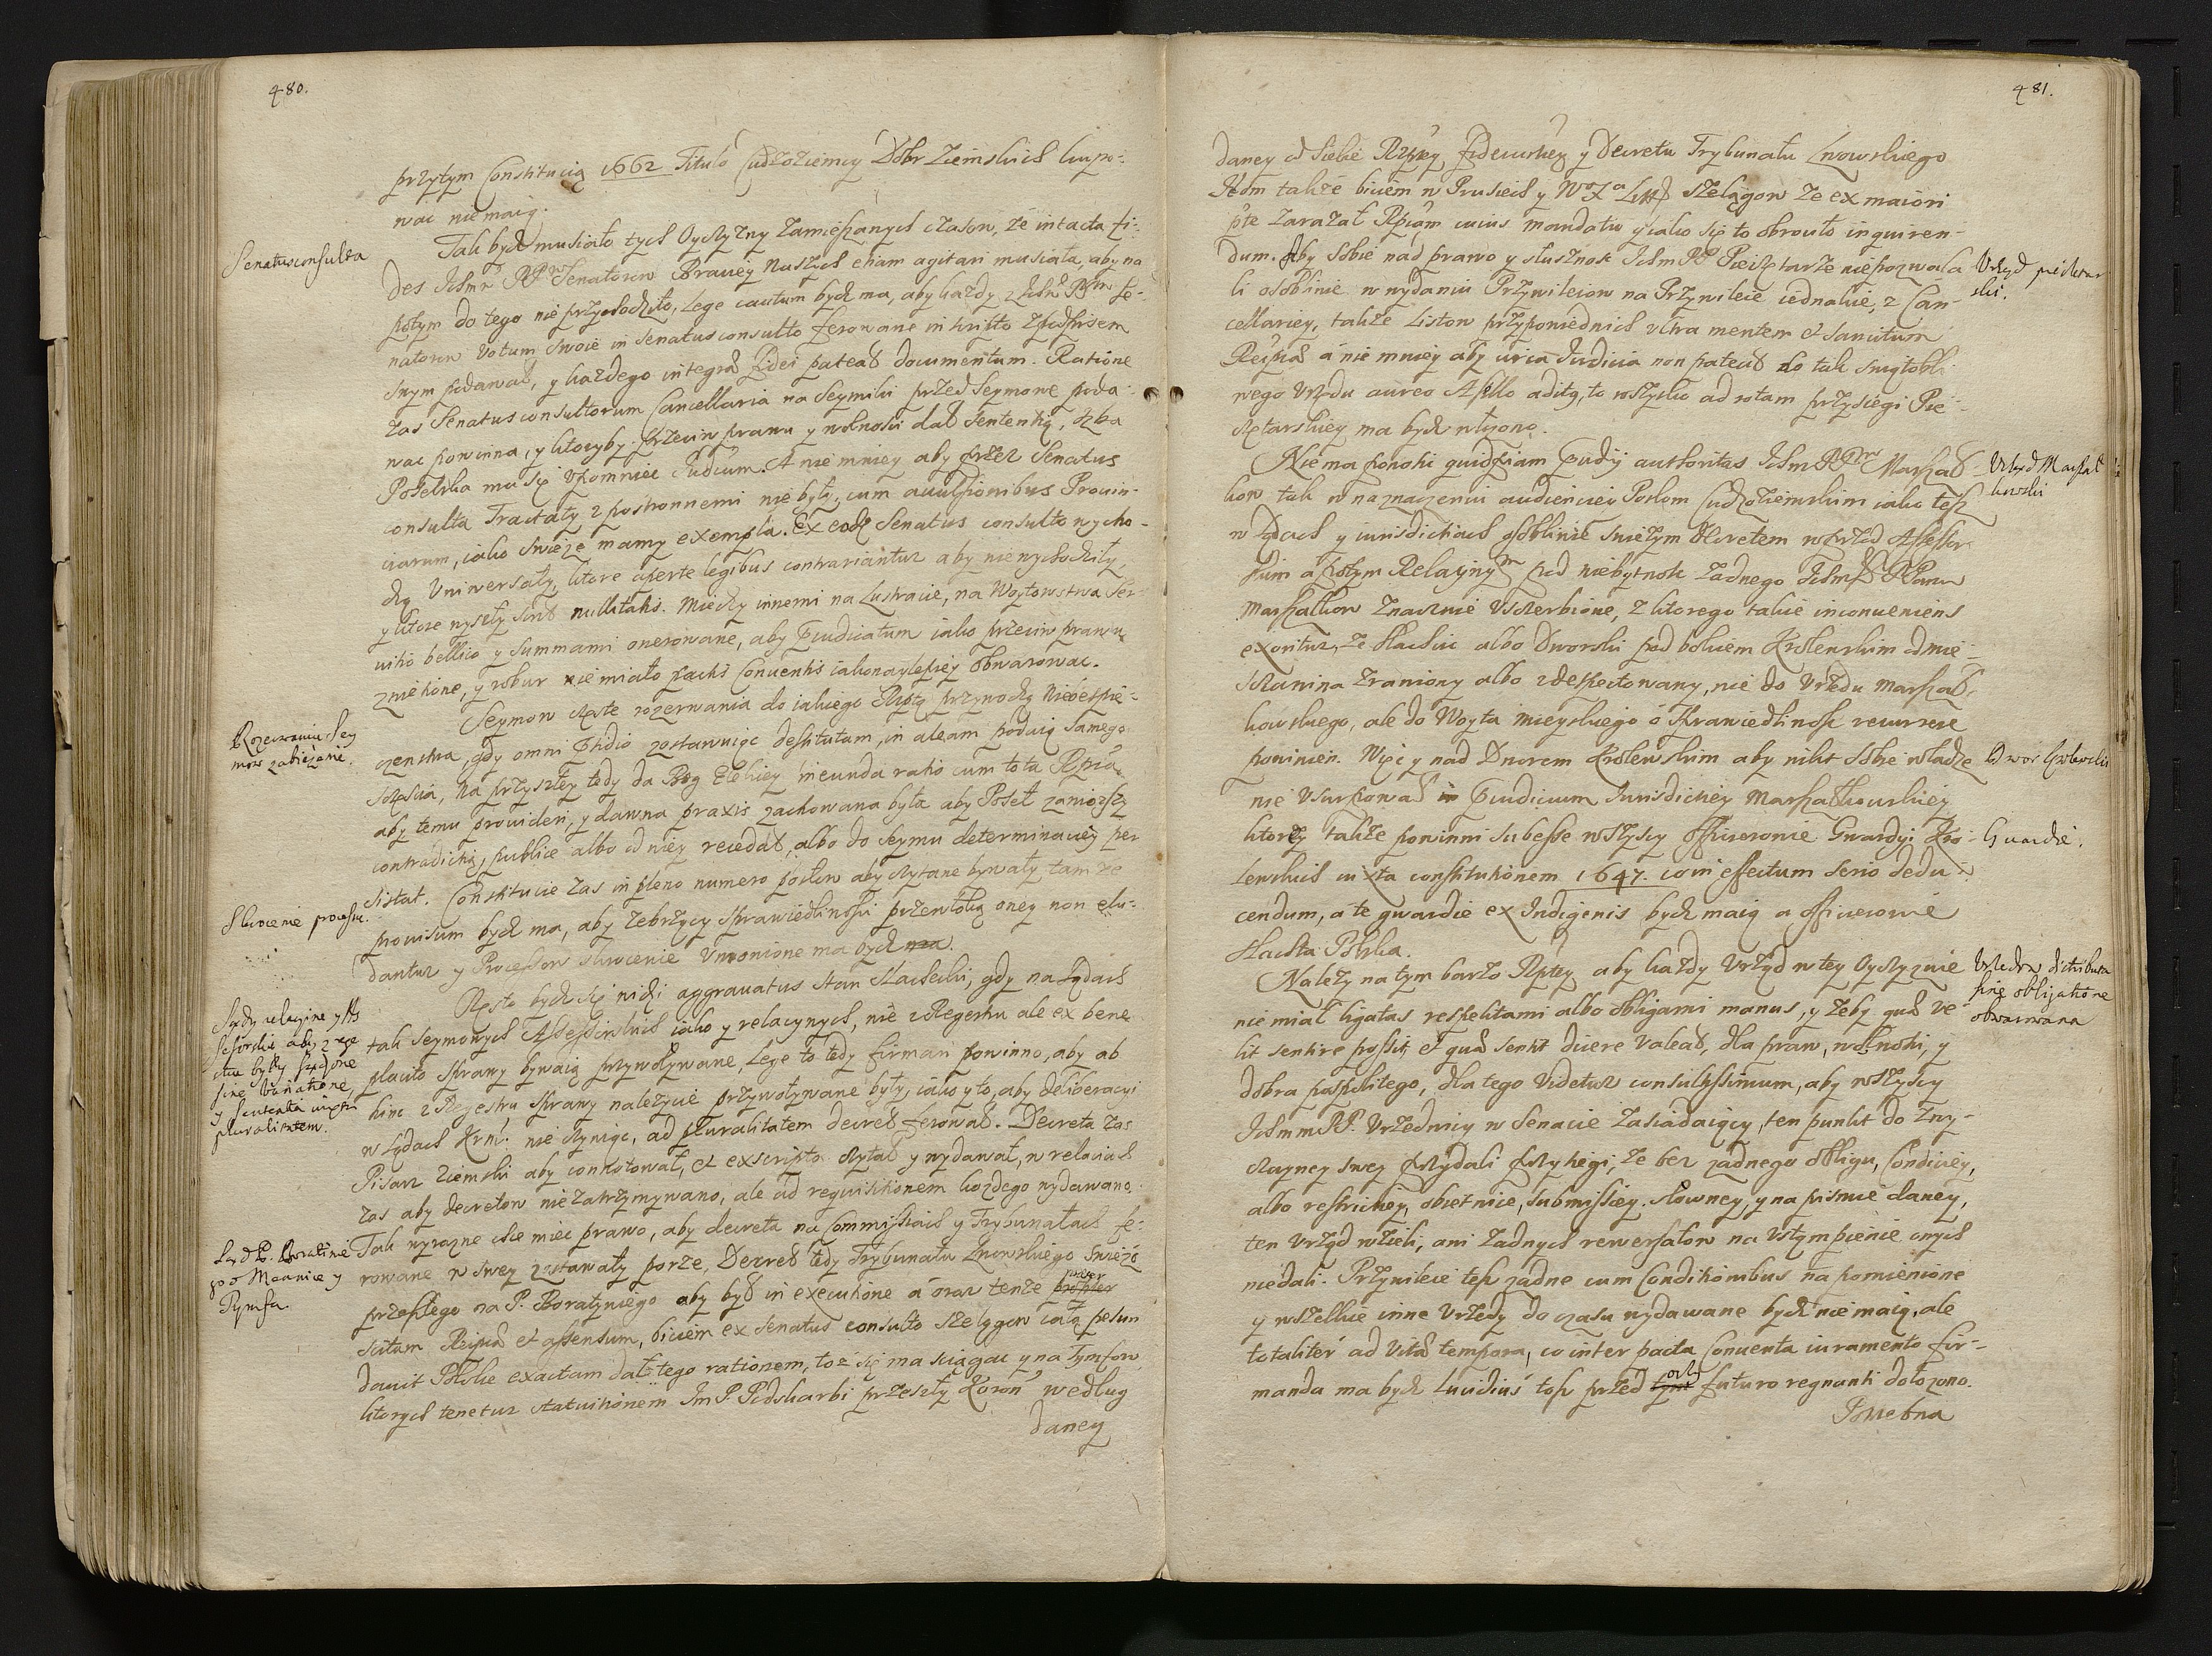 480.
przytym Constitucią 1662 Titulo Cudzoziemcy Dobr Ziemskich kupo-
wac niemaią.
Senatusconsulta
Tak bydź musiało tych Oyczyzny Zamieszanych czasow, że intacta fi-
des Ichmć PPw Senatorow Braciey Naszych etiam agitari musiała, aby na
potym do tego nie przychodziło, Lege cautum bydź ma, aby kazdy z Ichmć PPw Se-
natorow Votum swoie in Senatusconsulto ferowane in scripto z podpisem
swym podawał, y kazdego integra fidei pateat documentum. Ratione
zas Senatusconsultorum Cancellaria na Seymiki przed Seymowe poda-
wac powinna, y ktoryby przeciw prawu y wolności dał Sententią, Izba
Poselska ma się upomniec Iudicium. A nie mniey aby przez Senatus
consulta Tractaty z postronnemi nie były, cum avulsionibus Provin-
ciarum, iako swieże mamy exempla. Ex eodem Senatus consulto wycho-
dzą Uniwersały, ktore aperte legibus contrariantur aby nie wychodziły,
y ktore wyszły sint nullitatis. Miedzy innemi na Lustracie, na Woytowstwa Ser-
vitio bellico y Summami onerowane, aby praeiudicatum iako przeciw prawu
zniesione, y robur nie miało pactis Conventis iakonaylepiey obwarowac.
Rozerwaniu Sey
mow zabieżenie.
Seymow częste rozerwania do iakiego Rzptą przywodzą Niebespie-
czenstwa, gdy omni praesidio zostawuiąc destitutam, in aleam podaią samego
szczęścia, Na przyszłey tedy da Bog Elekciey ineunda ratio cum tota Rpca
aby temu provideri, y dawna praxis zachowana była aby Poseł zaniosszy
contradictią, publice albo od niey recedat, albo do seymu determinaciey per
sistat. Constitucie zas in pleno numero posłow aby czytane bywały, tamze
Skrocenie processu.
provisum bydź ma, aby Zebrzący sprawiedliwości przewłoką oney non elu-
dantur y Processow skrocenie Vmowione ma bydź
Sądy relacyine y As
sesorskie aby z reje
stru były sądzone
sine variatione,
y sententia iuxta
pluralitatem.
Częsta bydź się widzi aggravatus stan Szlachecki, gdy na sądach
tak seymowych Assessorskich iako y relacynych, nie z Regestru ale ex bene
placito sprawy bywaią przywoływane, Lege to tedy firmari powinno, aby ab
hinc z Regestru sprawy należycie przywoływane były, iako y to, aby deliberacyi
w sądach Krmć. nie czyniąc, ad pluralitatem decret ferował. Decreta zas
Pisarz Ziemski aby connotował, et ex scripto czytał y wydawał, w relaciach
zas aby decretow nie zatrzymywano, ale ad requisitionem kozdego wydawano.
Sąd P. Boratinie
go o Mennice y
Tymfa.
Tak wyrazne chce miec prawo, aby decreta na Commissiach y Trybunałach fe-
rowane w swey zostawały porze, Decret tedy Trybunału Lwowskiego swieżo
przeszłego na P. Boratyniego aby był in executione a oraz tenze praeter propter
scitum Reipub et assensum, biciem ex senatus consulto Szelągow całą pesun
davit Polskę exactam dał tego rationem, toż się ma sciągac y na Tymfow
ktorych tenetur statuitionem Im P. Podskarbi przeszły Koron według
daney
481.
daney od Siebie Rzptey fideiussiey y Decretu Trybunału Lwowskiego
Atm także biciem w Prusiech y szelągow ze ex maiori
pte zarażał Rpcam cuius mandatu y iako się to obrociło inquiren-
dum. Aby sobie nad prawo y słusznosc Ichm PP Pieczętarze niepozwala
Urząd pieczetar
ski.
li osobliwie w wydaniu Przywileiow na Przywileie iednakie, z Can-
cellariey, także Listow przypowiednich ultra mentem et sancitum
Reipub a nie mniey aby circa Iudicia non pateat do tak swiątobli
wego Urzędu aureo Asello aditus, to wszytko ad rotam przysiegi Pie-
czętarskiey ma bydź włożono.
Nie ma ponosić quidpiam praeiudicii authoritas Ichm PPw Marszał-
Urząd Marszał
kowski
kow tak w naznaczeniu audienciey Posłom Cudzoziemskim iako tesz
w Sądach y iurisdictiach osobliwie swieżym Decretem w przod Assessor-
skim a potym Relacyinym pod niebytnosc żadnego Ichm PPanow
Marszałkow znacznie Uszczerbione, z ktorego takie inconveniens
exoritur, że szlachcic albo Dworski pod bokiem Krolewskim od mie-
szczanina zraniony albo zdespectowany, nie do Urzędu Marszał-
kowskiego, ale do Woyta mieyskiego o sprawiedliwosć recurrere
powinien. Więc y nad Dworem Krolewskim aby nikt sobie władze
Dwor Krolewski
nie usurpował in praeiudicium Iurisdictiey Marszałkowskiey
ktorey także powinni subesse wszyscy officerowie Gwardyi Kro-
Guardie.
lewskich iuxta constitutionem 1647. co in effectum serio dedu-
cendum, a te gwardie ex Indigenis bydź maią a officerowie
szlachta Polska.
Należy na tym barzo Rzptey aby kazdy Urząd w tey Oyczyznie
Urzędow distributa
sine obligatione
obwarowana
nie miał ligatas respektami albo obligami manus, y żeby qua ve-
lit sentire possit, et qua sentit dicere valeat, dla praw, wolnosci, y
dobra pospolitego, dla tego videtur consultissimum, aby wszyscy
Ichmm PP. Urzednicy w Senacie zasiadaiący, ten punkt do zwy-
czayney swey przydali przysięgi, że bez zadnego obligu, Condiciey,
albo restrictiey, obietnice, submissiey, słowney, y na pismie daney,
ten Urząd wzieli, ani żadnych rewersałow na ustąmpienie onych
niedali. Przywileie tesz żadne cum Conditionibus na pomienione
y wszelkie inne Urzędy do czasu wydawane bydź nie maią, ale
totaliter ad vitae tempora, co inter pacta Conventa iuramento fir-
manda ma bydź lucidius tosz przed futuro regnanti dołożono.
Potrzebna